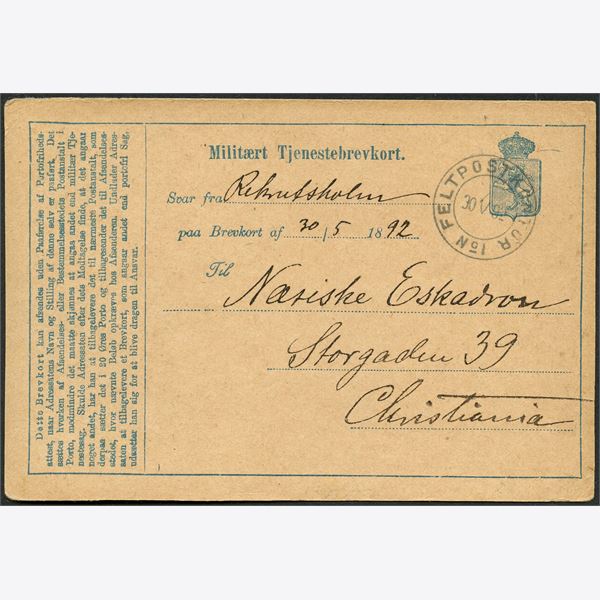 Militært Tjenestebrevkort.
Svar fra Rekrutskolen
paa Brevkort af 30/5 1892.
Til Næriske Eskadron
Storgaden 39
Christiania
FELTPOSTKONTOR Iᵒᴺ
30
Dette Brevkort kan afsendes uden Paaførelse af Portofriheds-
attest, naar Adressatens Navn og Stilling af denne selv er paaført. Det
sættes hverken af Afsendelses- eller Bestemmelsesstedets Postanstalt i
Porto, medmindre det maatte skjønnes at angaa andet end militær Tje-
nestesag. Skulde Adressaten efter dets Modtagelse finde, at det angaar
noget andet, har han at tilbagelevere det til nærmeste Postanstalt, som
derpaa sætter det i 20 Øres Porto og tilbagesender det til Afsendelses-
stedet, hvor nævnte Beløb opkræves hos Afsenderen. Undlader Adres-
saten at tilbagelevere et Brevkort, som angaar andet end portofri Sag,
udsætter han sig for at blive dragen til Ansvar.